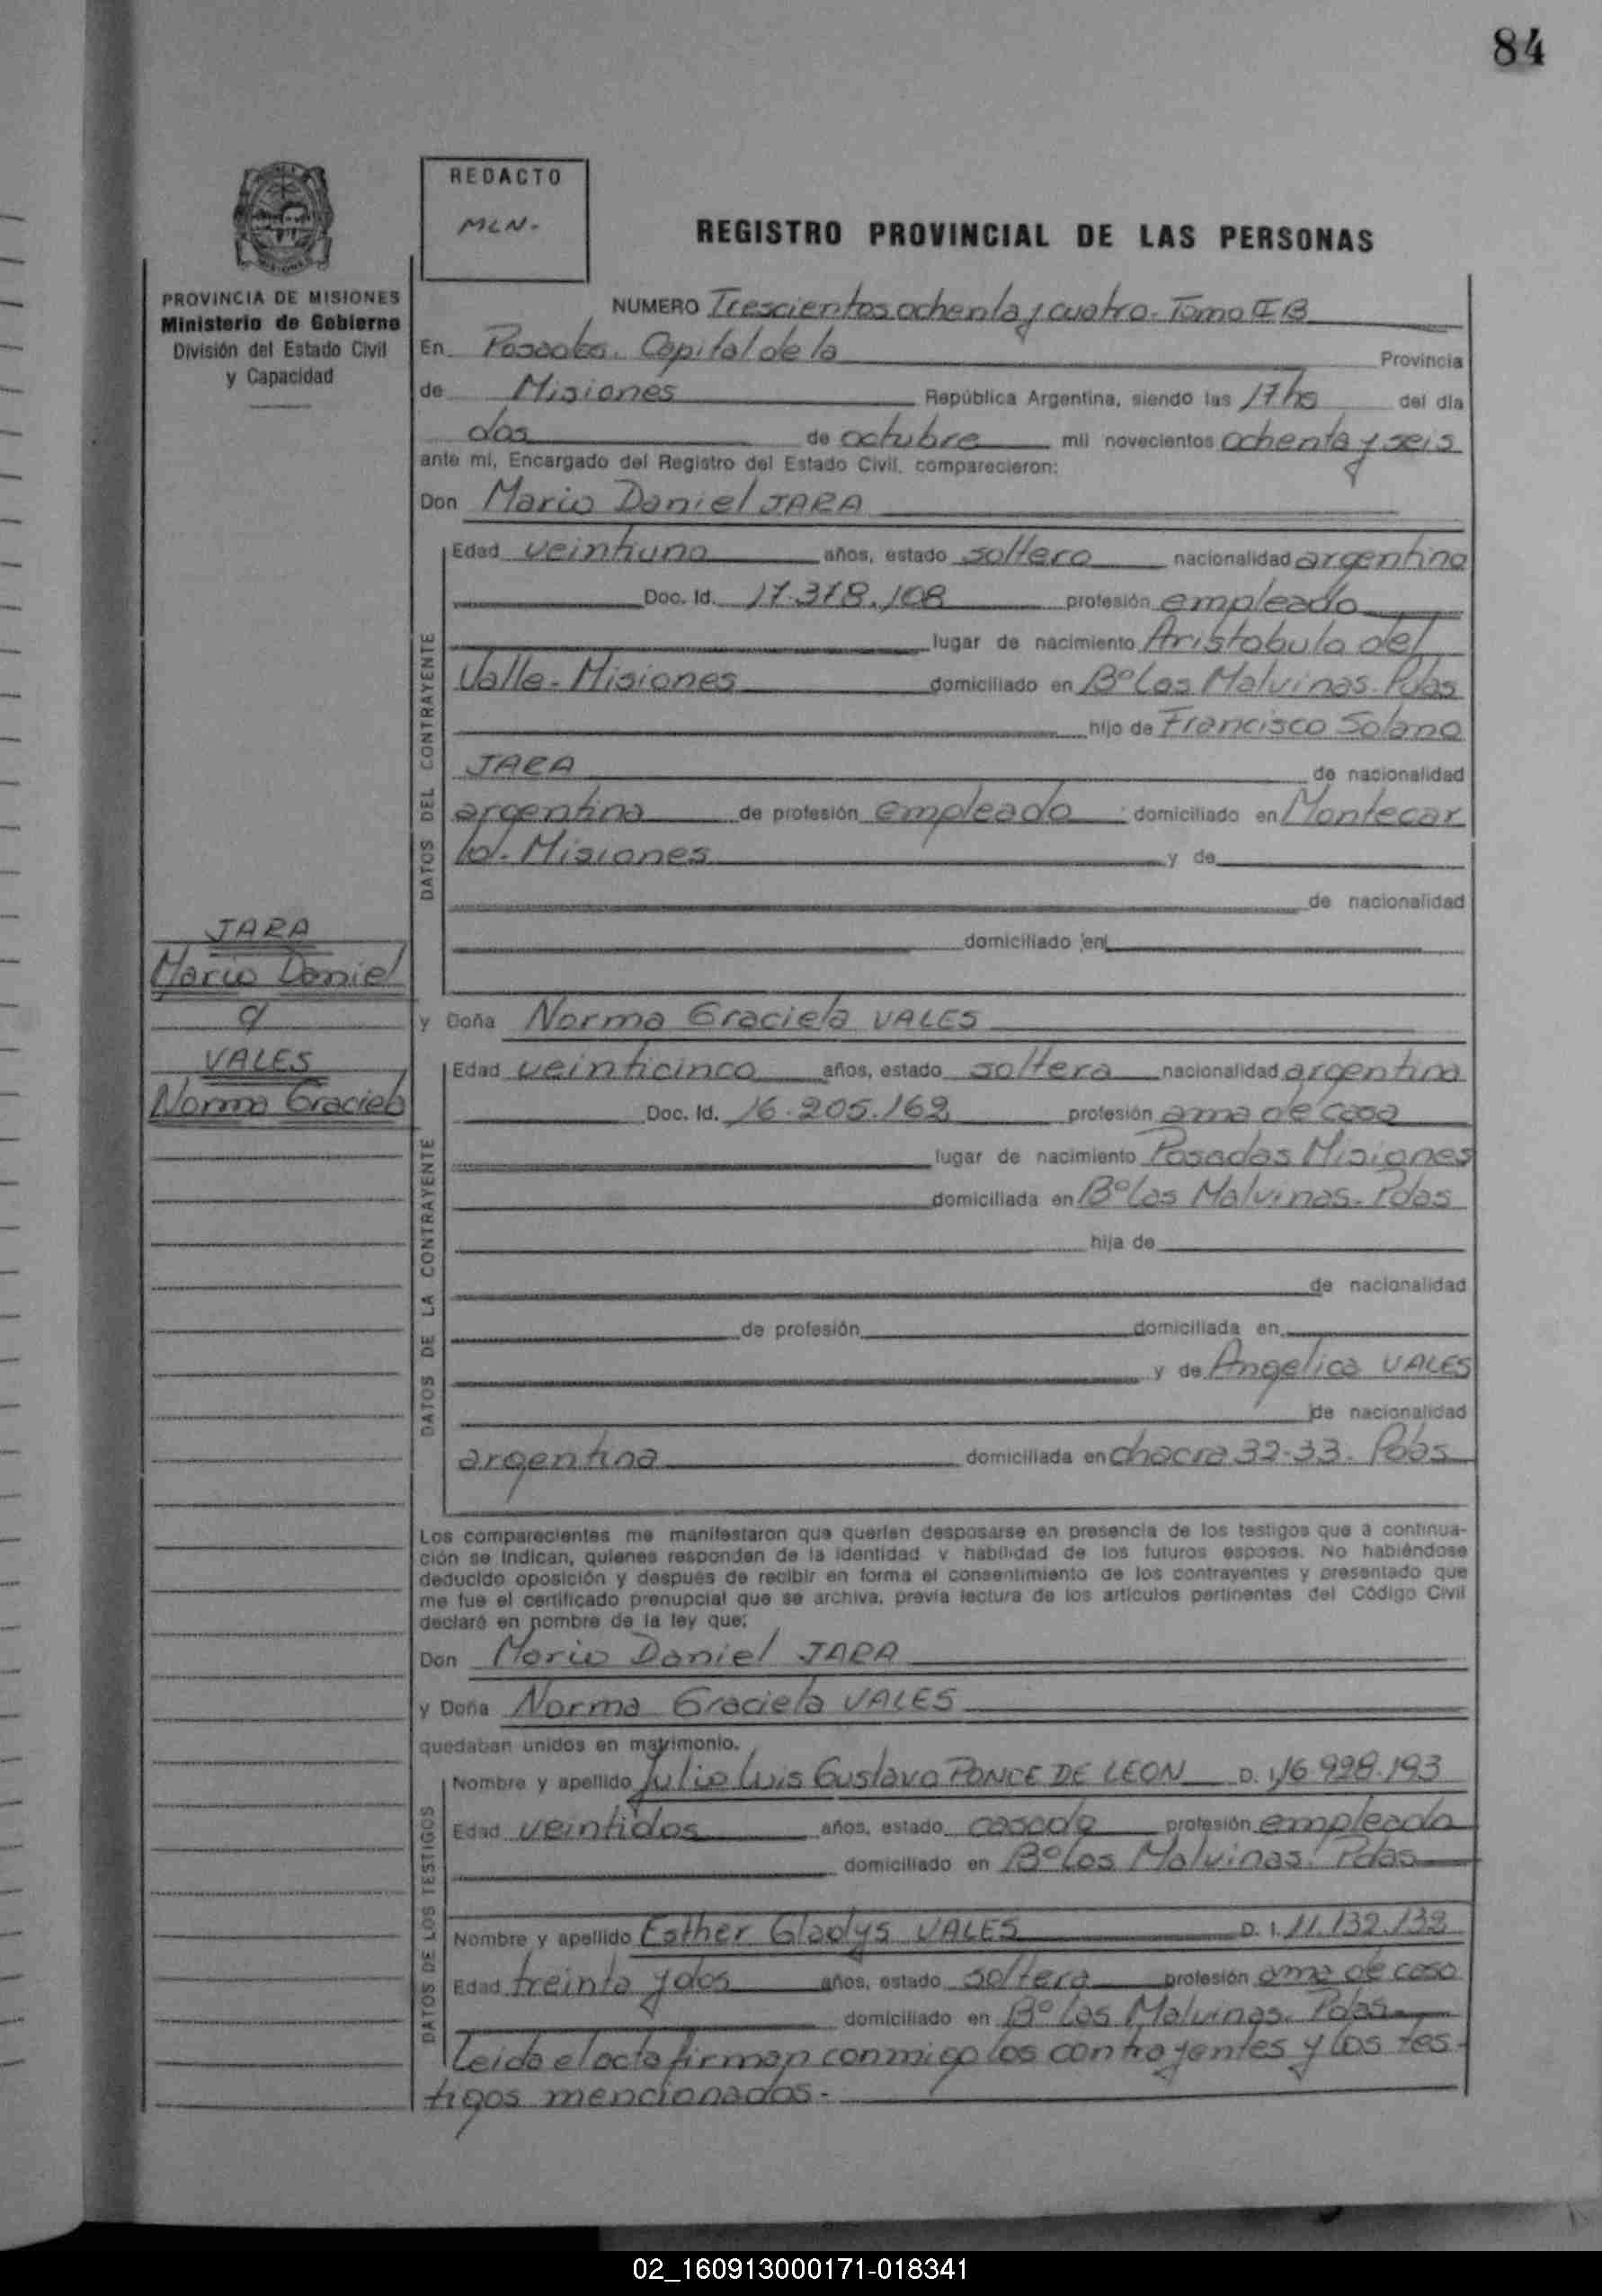 84
REDACTO
MLN.-
REGISTRO PROVINCIAL DE LAS PERSONAS
PROVINCIA DE MISIONES
Ministerio de Gobierno
División del Estado Civil
y Capacidad
NUMERO Trescientos ochenta y cuatro - Tomo II B
En Posadas. Capital de la Provincia
de Misiones República Argentina, siendo las 17 hs del día
dos de octubre mil novecientos ochenta y seis
ante mí, Encargado del Registro del Estado Civil, comparecieron:
Don Mario Daniel JARA
DATOS DEL CONTRAYENTE
Edad veintiuno años, estado soltero nacionalidad argentino
Doc. Id. 17.378.108 profesión empleado
lugar de nacimiento Aristobulo del
Valle - Misiones domiciliado en Bº Las Malvinas - Pdas
hijo de Francisco Solano
JARA de nacionalidad
argentina de profesión empleado domiciliado en Montecar
lo - Misiones y de
de nacionalidad
domiciliado en
JARA
Mario Daniel
y
VALES
Norma Graciela
y Doña Norma Graciela VALES
DATOS DE LA CONTRAYENTE
Edad veinticinco años, estado soltera nacionalidad argentina
Doc. Id. 16.205.162 profesión ama de casa
lugar de nacimiento Posadas Misiones
domiciliada en Bº Las Malvinas - Pdas
hija de
de nacionalidad
de profesión domiciliada en
y de Angelica VALES
de nacionalidad
argentina domiciliada en chacra 32-33. Pdas
Los comparecientes me manifestaron que querían desposarse en presencia de los testigos que a continua-
ción se indican, quienes responden de la identidad y habilidad de los futuros esposos. No habiéndose
deducido oposición y después de recibir en forma el consentimiento de los contrayentes y presentado que
me fue el certificado prenupcial que se archiva, previa lectura de los artículos pertinentes del Código Civil
declaré en nombre de la ley que:
Don Mario Daniel JARA
y Doña Norma Graciela VALES
quedaban unidos en matrimonio.
DATOS DE LOS TESTIGOS
Nombre y apellido Julio Luis Gustavo PONCE DE LEON D. I. 16.998.193
Edad veintidos años, estado casado profesión empleado
domiciliado en Bº Las Malvinas. Pdas
Nombre y apellido Esther Gladys VALES D. I. 11.132.138
Edad treinta y dos años, estado soltera profesión ama de casa
domiciliado en Bº Las Malvinas. Pdas.
Leida el acta firman conmigo los contrayentes y los tes-
tigos mencionados.-
02_160913000171-018341